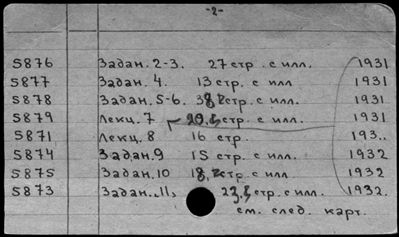 -2-
5876 Задан. 2-3. 27 стр. с илл. 1931
5877 Задан. 4. 13 стр. с илл 1931
5878 Задан. 5-6. стр. с илл. 1931
5879 Лекц. 7 стр. с илл. 1931
5871 Лекц. 8 16 стр. 193..
5874 Задан. 9 15 стр. с илл. 1932
5875 Задан. 10 18, стр. с илл 1932
5873 Задан. 11, стр. с илл. 1932.
см. след. карт.